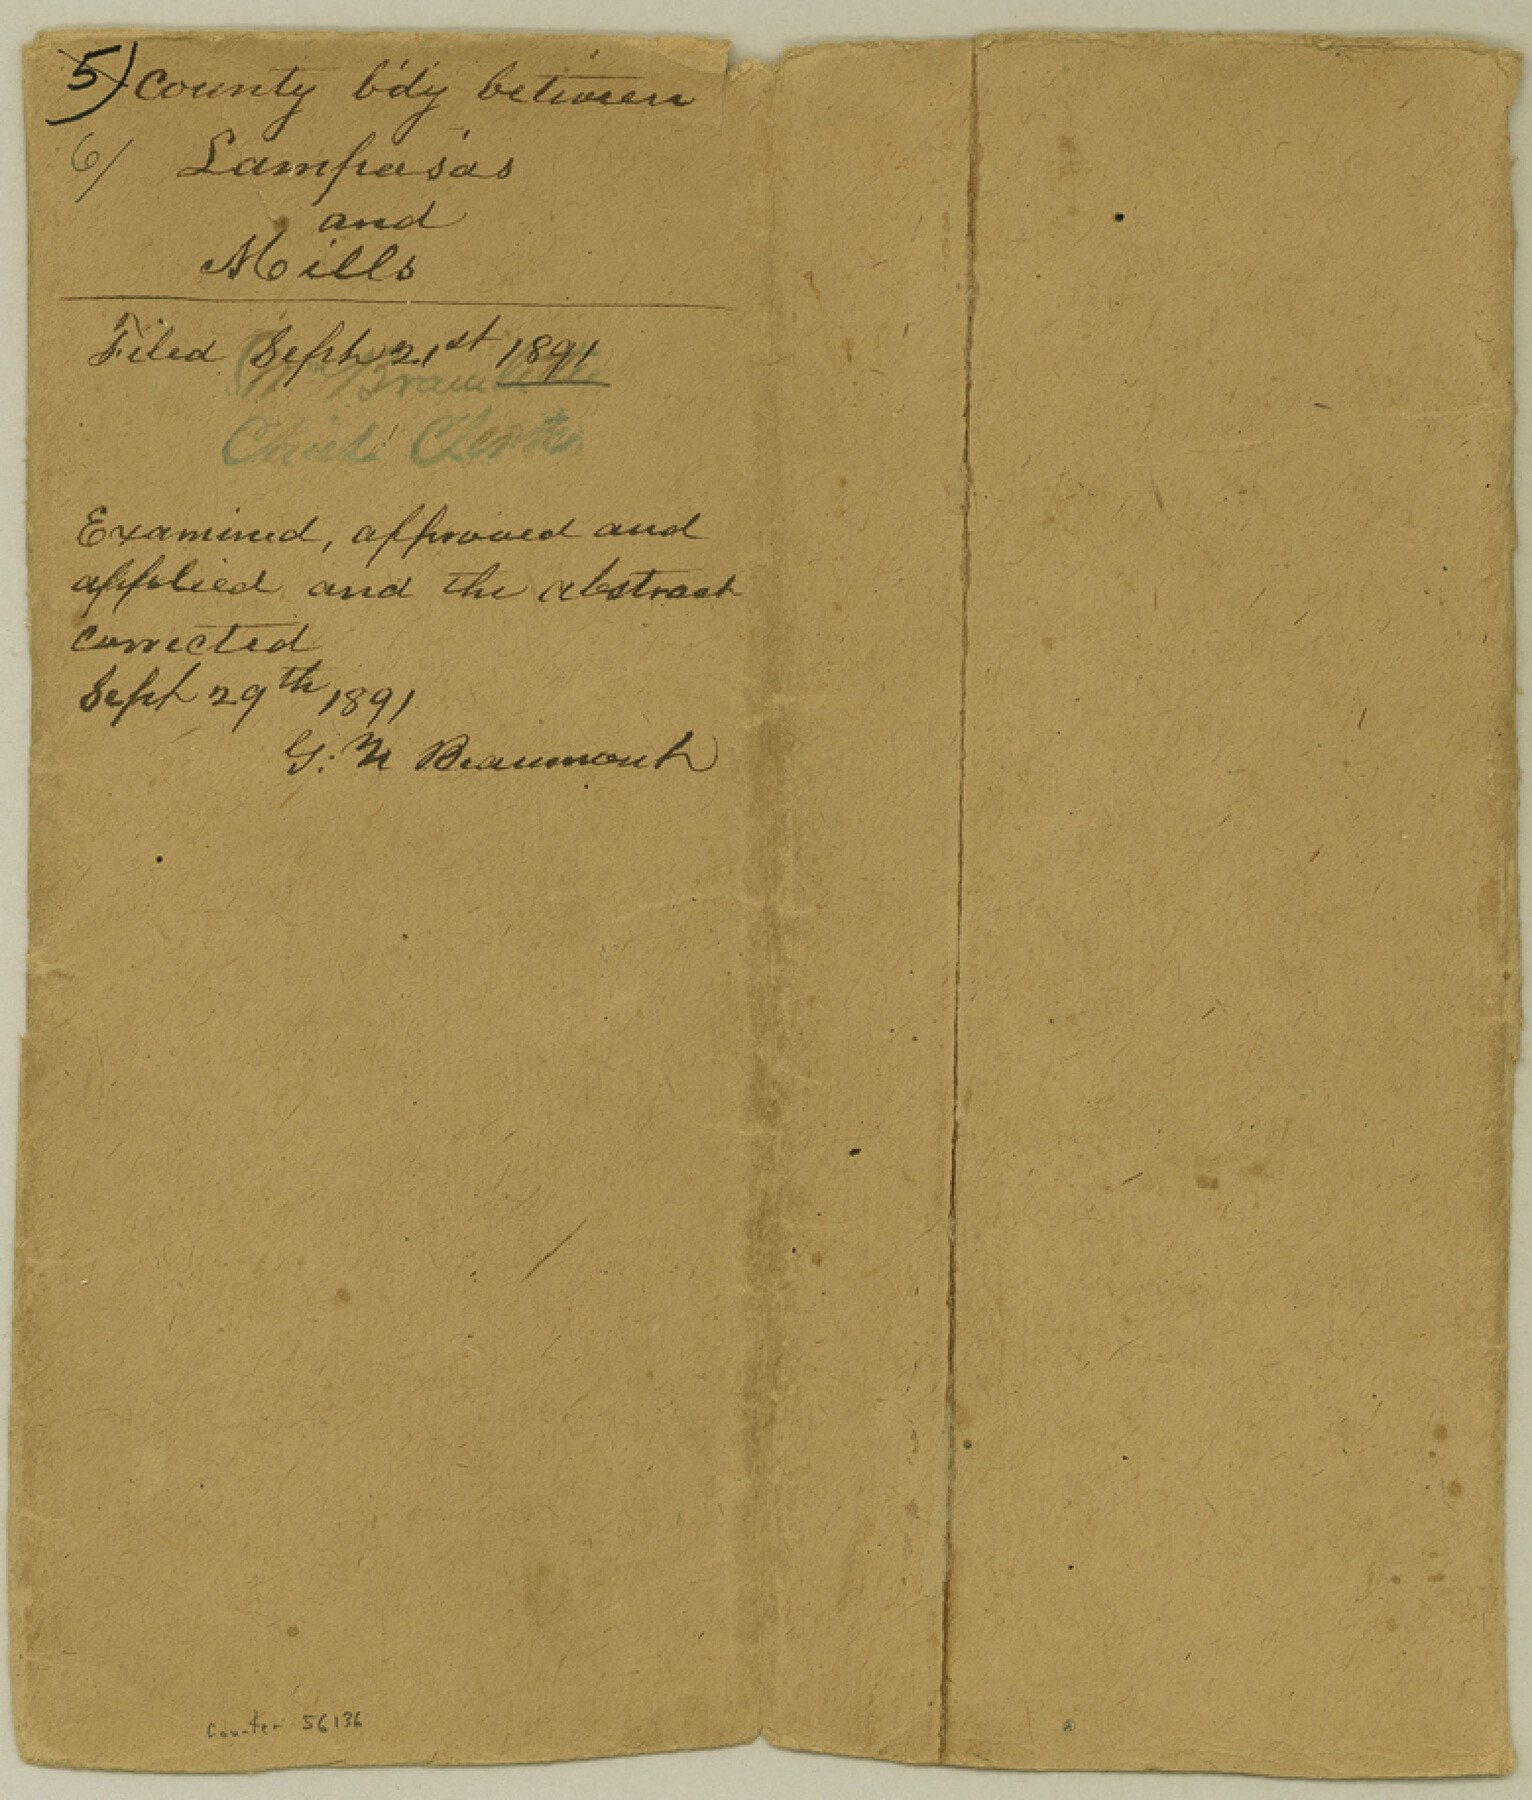 5) County b'd'y between
6/ Lampasas
and
Mills
Filed Sept 21st 1891
Chief Clerk
Examined, approved and
applied and the abstract
corrected
Sept 29th 1891
G. N Beaumont
Counter 56136